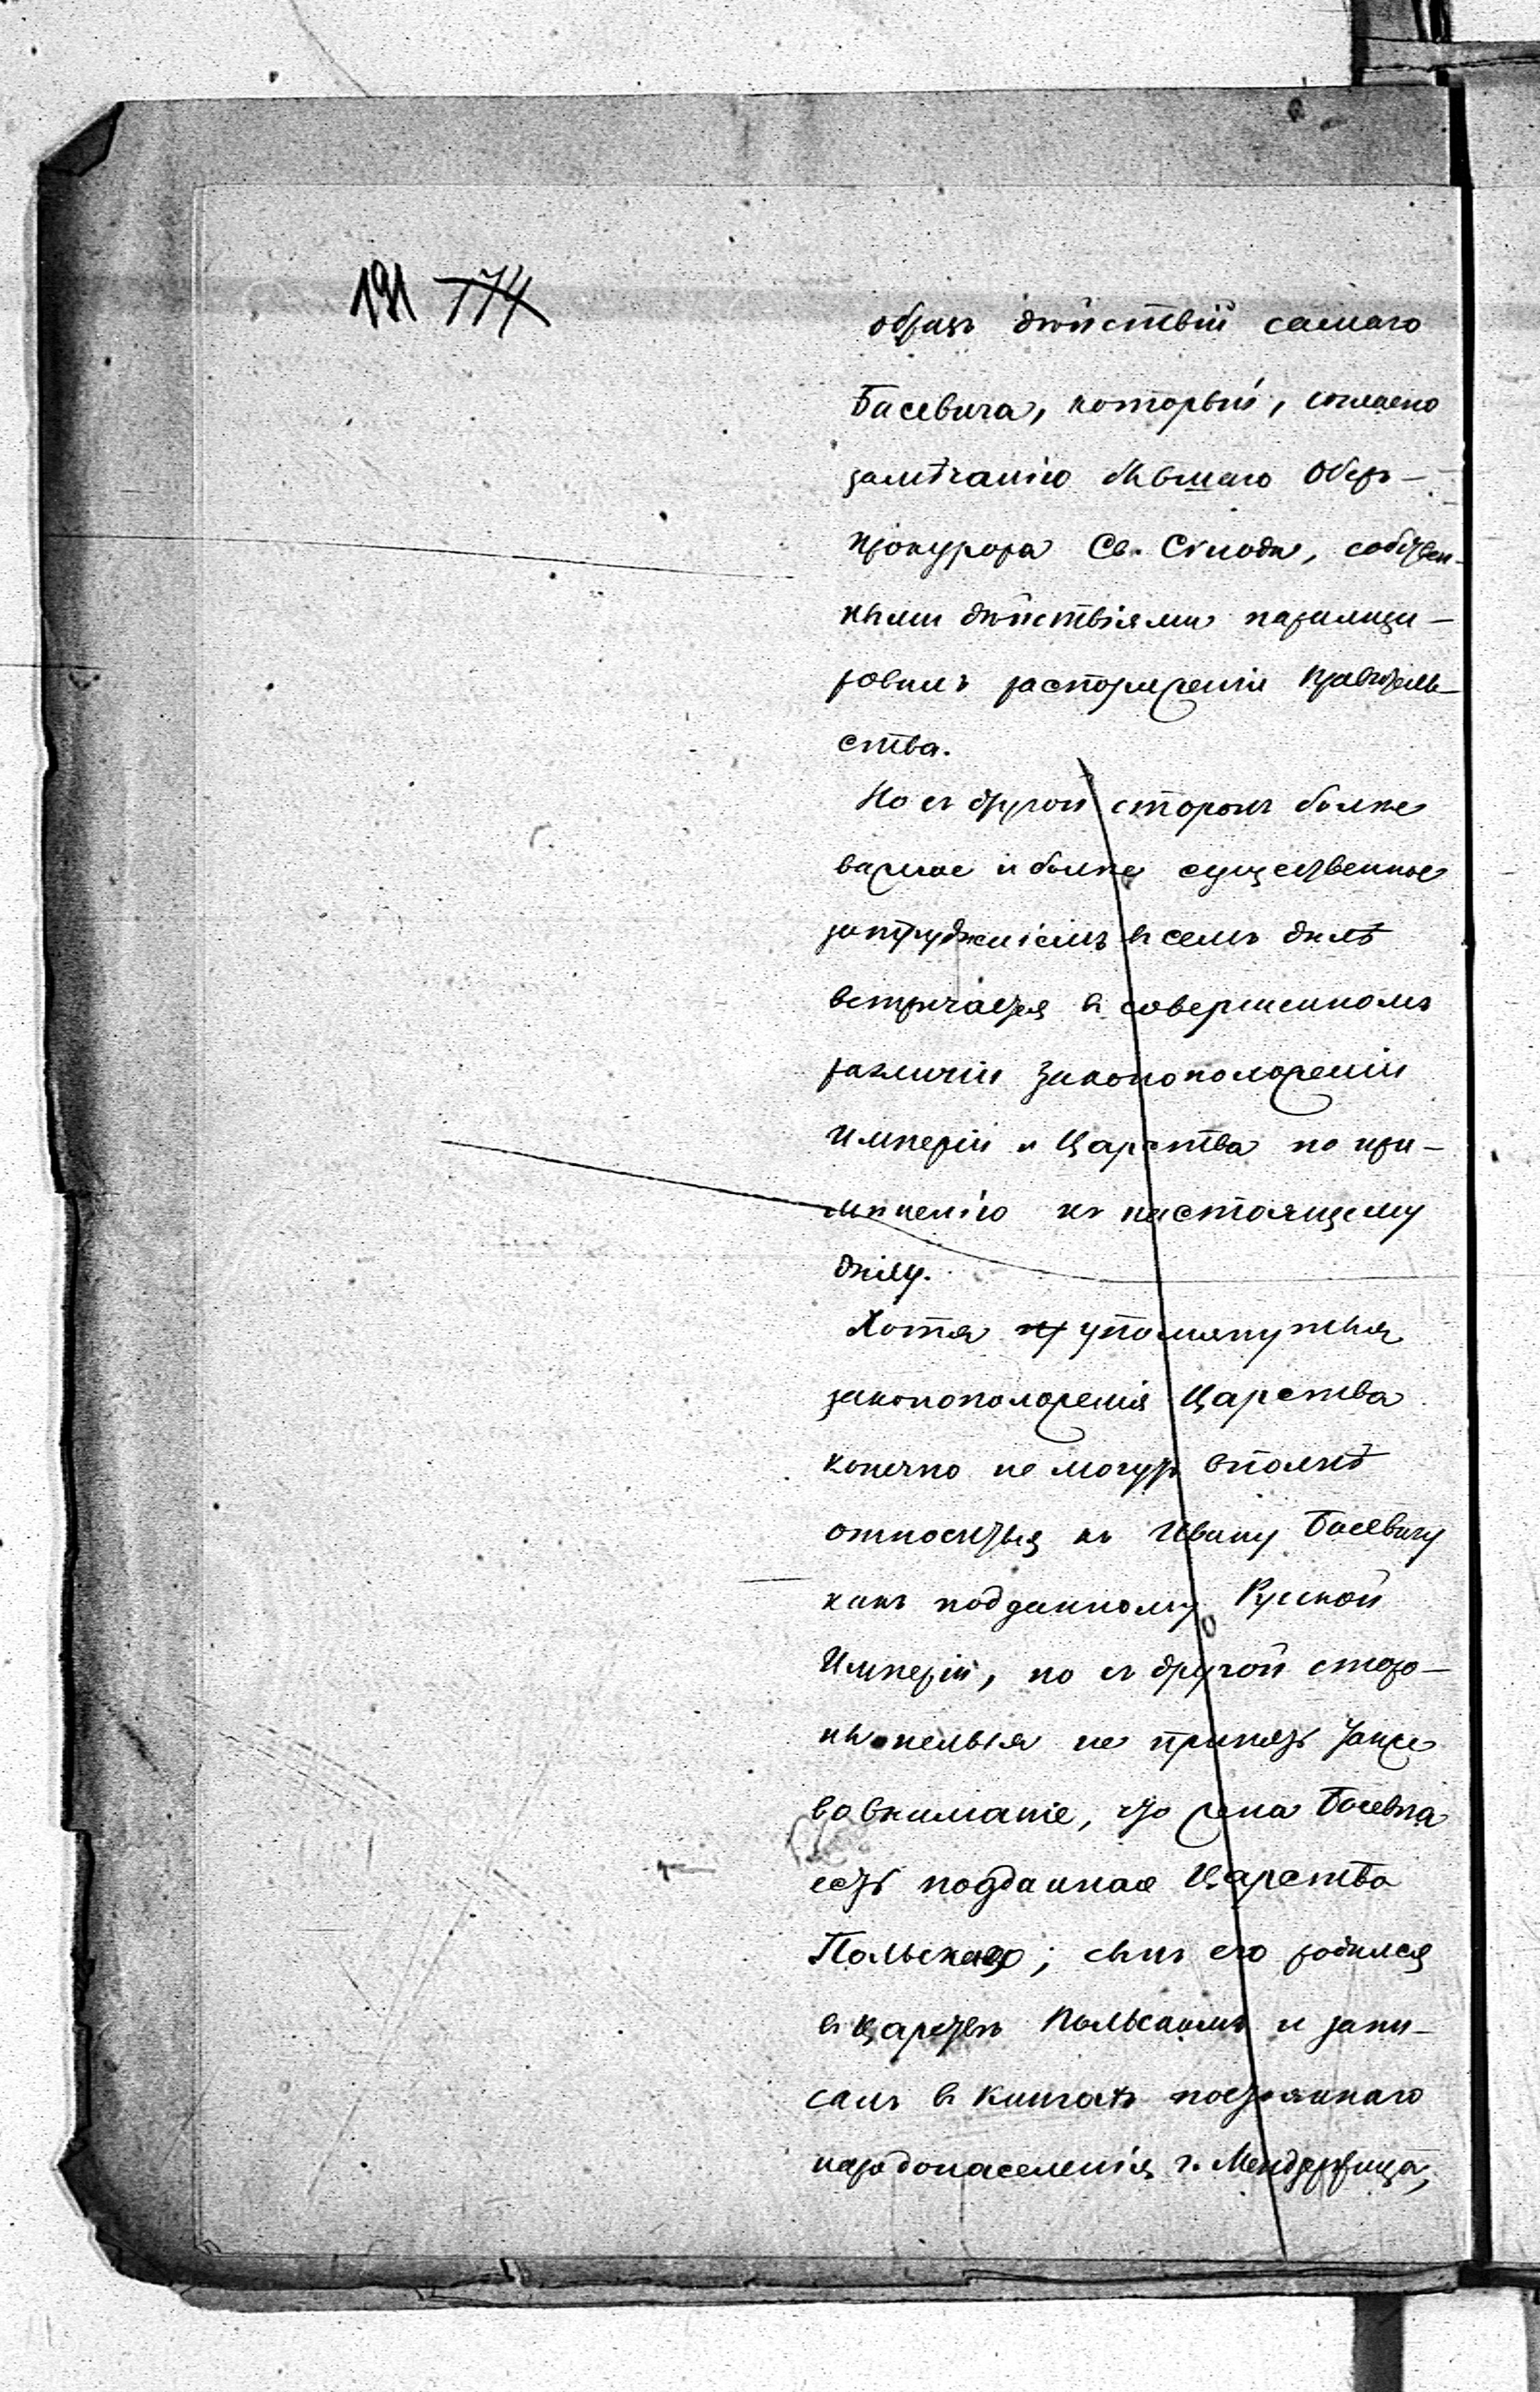 191 174
образъ дѣйствій самаго
Басевича, который, согласно
замѣчанію бывшаго Оберъ-
прокурора Св. Сѵнода, собствен-
ными дѣйствіями парализи-
ровалъ распоряженія Правитель-
ства.
Но съ другой стороны болѣе
важное и болѣе существенное
затрудненіемъ въ семъ дѣлѣ
встрѣчается въ совершенномъ
различіи законоположеній
Имперіи и Царства по при-
мѣненію къ настоящему
дѣлу.
Хотя упомянутыя
законоположенія Царства
конечно не могутъ вполнѣ
относиться къ Ивану Басевичу
какъ подданному Русской
Имперіи, но съ другой сторо-
ны нельзя не принять также
во вниманіе, что жена Басевича
есть подданная Царства
Польскаго; сынъ его родился
въ Царствѣ Польскомъ и запи-
санъ въ книгахъ постояннаго
народонаселенія г.